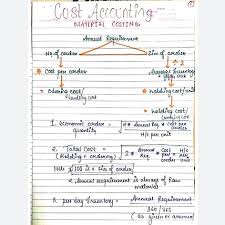 Cost Accounting
MATERIAL COSTING
Annual Requirement
No. of order
Size of order
÷ 2
Cost per order
Average Inventory
Ordering cost/
handling cost
holding cost/unit
holding cost/
1. Economic order quantity = √ 2 * Annual Req * Cost per order
H/c per unit
2. Total Cost = √ 2 * Annual Req. * Cost per order * H/c per unit
(Holding + ordering)
Size of order
Annual Requirement is always of Raw
material
3. per day Inventory = Annual Requirement
360/365
(as given or assumed)